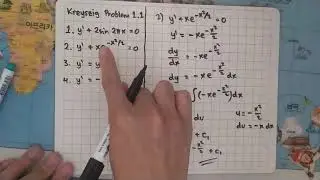 Kreyszig Problem 1.1
1. y' + 2sin 2πx = 0
2. y' + xe^{-x²/2} = 0
3. y' =
4. y' = -
2) y' + xe^{-x²/2} = 0
y' = -xe^{-x²/2}
dy/dx = -xe^{-x²/2}
∫(-xe^{-x²/2})dx
u = -x²/2
du = -x dx
+ C₁
-x²/2 + C₁